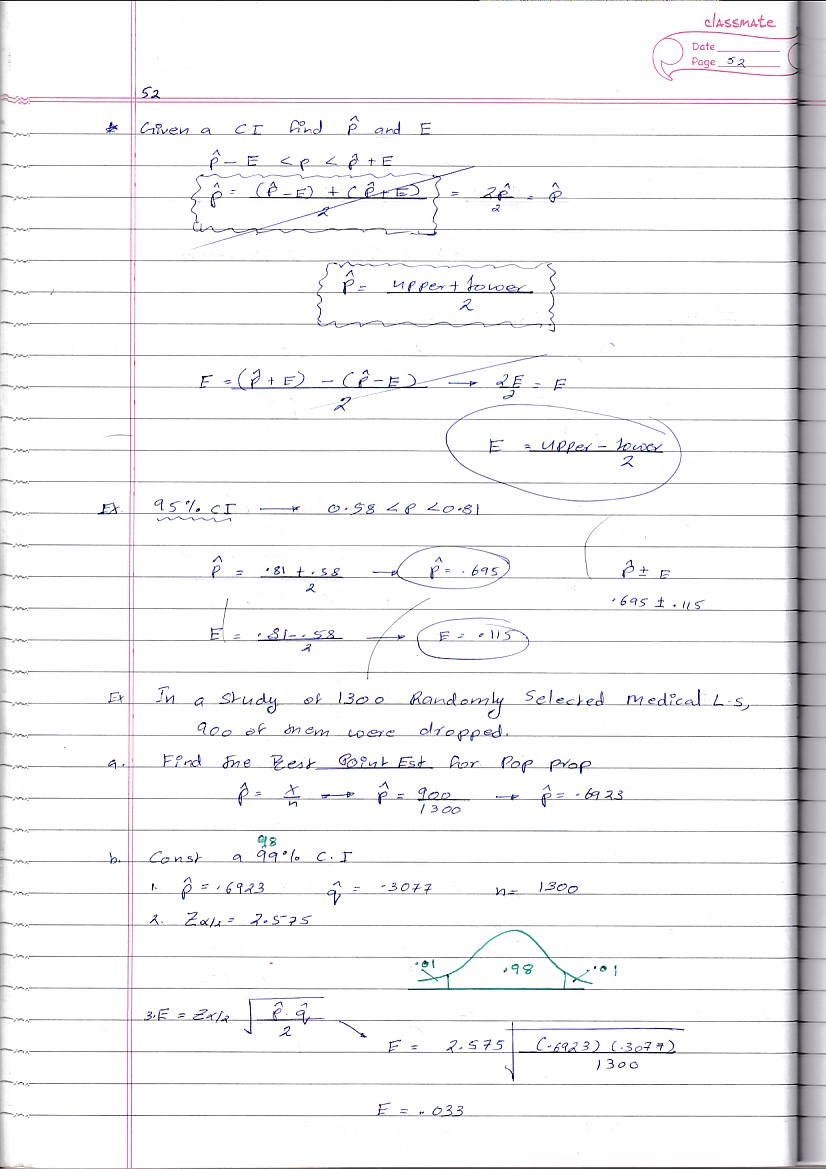 classmate
Date
Page 52
52
* Given a CI find p̂ and E
p̂ - E < p < p̂ + E
p̂ = (p̂ - E) + (p̂ + E) / 2 = 2p̂ / 2 = p̂
p̂ = upper + lower / 2
E = (p̂ + E) - (p̂ - E) / 2 → 2E / 2 = E
E = upper - lower / 2
Ex 95% CI → 0.58 < p < 0.81
p̂ = .81 + .58 / 2 → p̂ = .695 p̂ ± E
.695 ± .115
E = .81 - .58 / 2 → E = .115
Ex In a study of 1300 Randomly Selected medical L.S,
900 of them were dropped.
a. Find the Best Point Est for Pop prop
p̂ = x / n → p̂ = 900 / 1300 → p̂ = .6923
98
b. Const a 99% C.I
1. p̂ = .6923 q̂ = .3077 n = 1300
2. Zα/2 = 2.575
.01 .98 .01
3. E = Zα/2 √ p̂ · q̂ / 2
E = 2.575 √ (.6923) (.3077) / 1300
E = .033